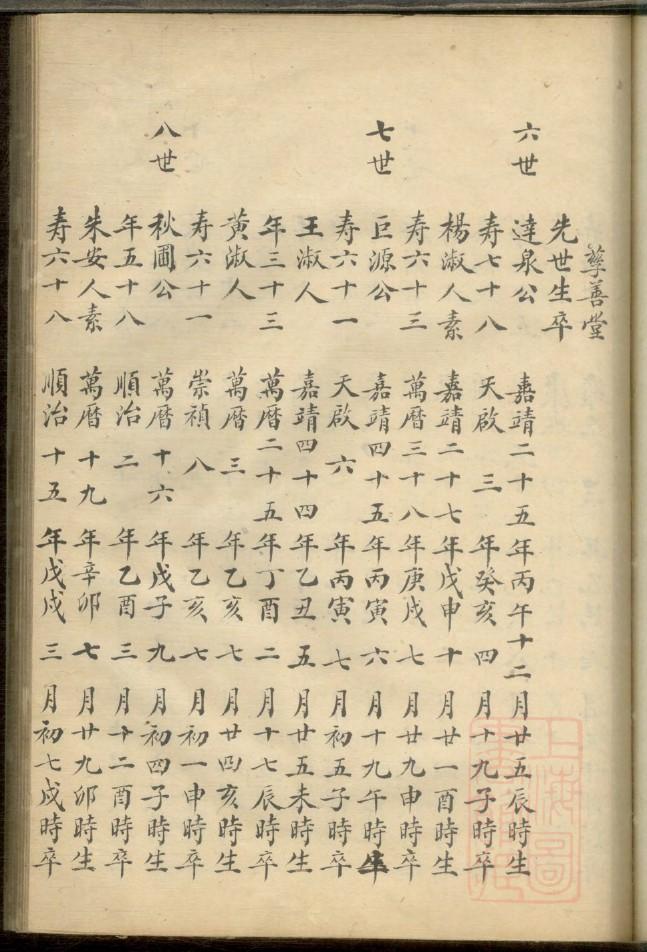 孳善堂
先世生卒
六世 達泉公 嘉靖二十五年丙午十二月廿五辰時生
寿七十八 天啟三年癸亥四月十九子時卒
楊淑人素 嘉靖二十七年戊申十月廿一酉時生
寿六十三 萬曆三十八年庚戌七月廿九申時卒
七世 巨源公 嘉靖四十五年丙寅六月十九午時生
寿六十一 天啟六年丙寅七月初五子時卒
王淑人 嘉靖四十四年乙丑五月廿五未時生
年三十三 萬曆二十五年丁酉二月十七辰時卒
黃淑人 萬曆三年乙亥七月廿四亥時生
寿六十一 崇禎八年乙亥七月初一申時卒
八世 秋圃公 萬曆十六年戊子九月初四子時生
年五十八 順治二年乙酉三月十二酉時卒
朱安人素 萬曆十九年辛卯七月廿九卯時生
寿六十八 順治十五年戊戌三月初七戌時卒
上海圖書館藏